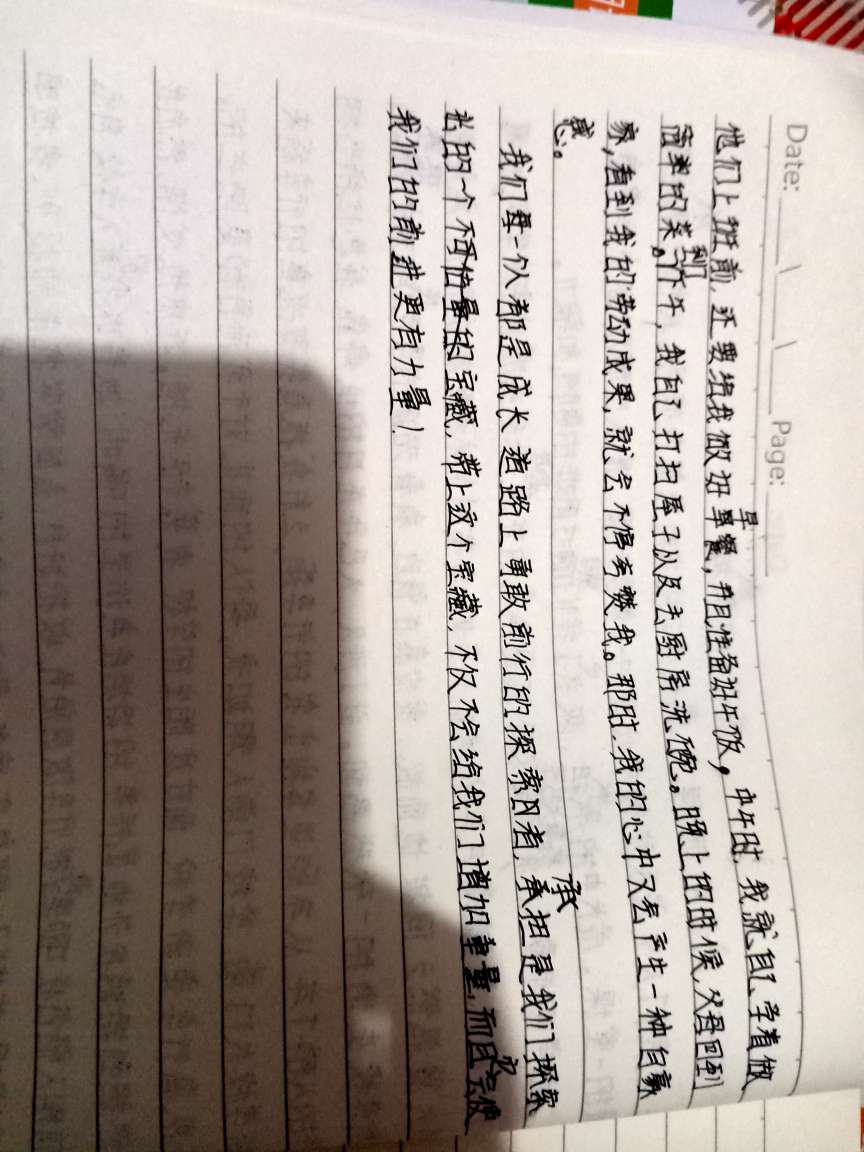 Date: Page:
他们上班前,还要给我做好早餐,并且准备好午饭。中午时,我就自己学着做
简单的菜。到下午,我自己打扫屋子以及去厨房洗碗。晚上的时候,父母回到
家,看到我的劳动成果,就会不停夸赞我。那时,我的心中又会产生一种自豪
感。
我们每一个人都是成长道路上勇敢前行的探索者,承担是我们探索
出的一个不可估量的宝藏,带上这个宝藏,不仅不会给我们增加重量,而且会使
我们的前进更有力量!